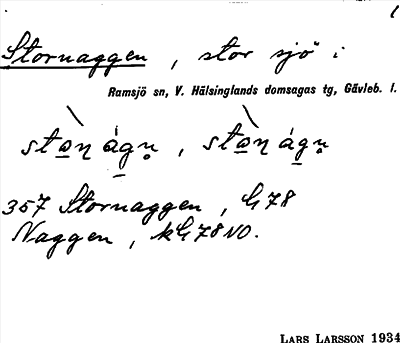 1
Stornaggen, stor sjö i
Ramsjö sn, V. Hälsinglands domsagas tg, Gävleb. l.
357 Stornaggen, G78
Naggen, kG78NO.
LARS LARSSON 1934